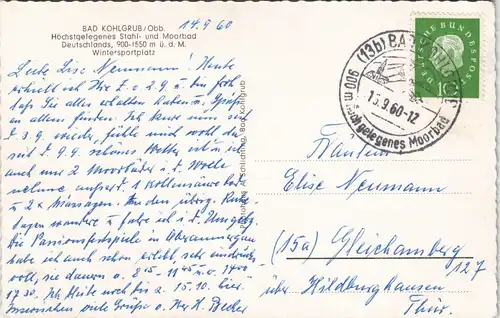 BAD KOHLGRUB/Obb.
Höchstgelegenes Stahl- und Moorbad
Deutschlands, 900-1550 m ü. d. M.
Wintersportplatz
14.9.60
Liebe Lise Neumann! Heute
erhielt ich Ihre v. 2.9. u. bin froh
daß Sie alles erhalten haben u. Grüße
an allem finden. Ich kurse nun seit
d. 3.9. wieder, fühle mich wohl da
seit d. 9.9. schönes Wetter ist u. ich
auch nur 2 Moorbäder i. d. Wolle
nehme außerd. 1 Kohlensäure
u. 2 x Massagen. An den übrig.
tagen wandere u. fahre ich i. d. Umgebg.
Die Passionsfestspiele in Oberammergau
habe ich auch schon erlebt, sehr eindrucks
voll, sie dauern v. 8 15 - 11 45 u. v. 14 00
17 30. Ich bleibe noch bis z. 15.10. hier.
Inzwischen viele Grüße v. Ihrer H. Becker
(13b) BAD KOHLGRUB
15.9.60-12
900 m höchgelegenes Moorbad
DEUTSCHE BUNDESPOST
10
Fräulein
Elise Neumann
(15a) Gleichamberg
127
über Hildburghausen
Thür.